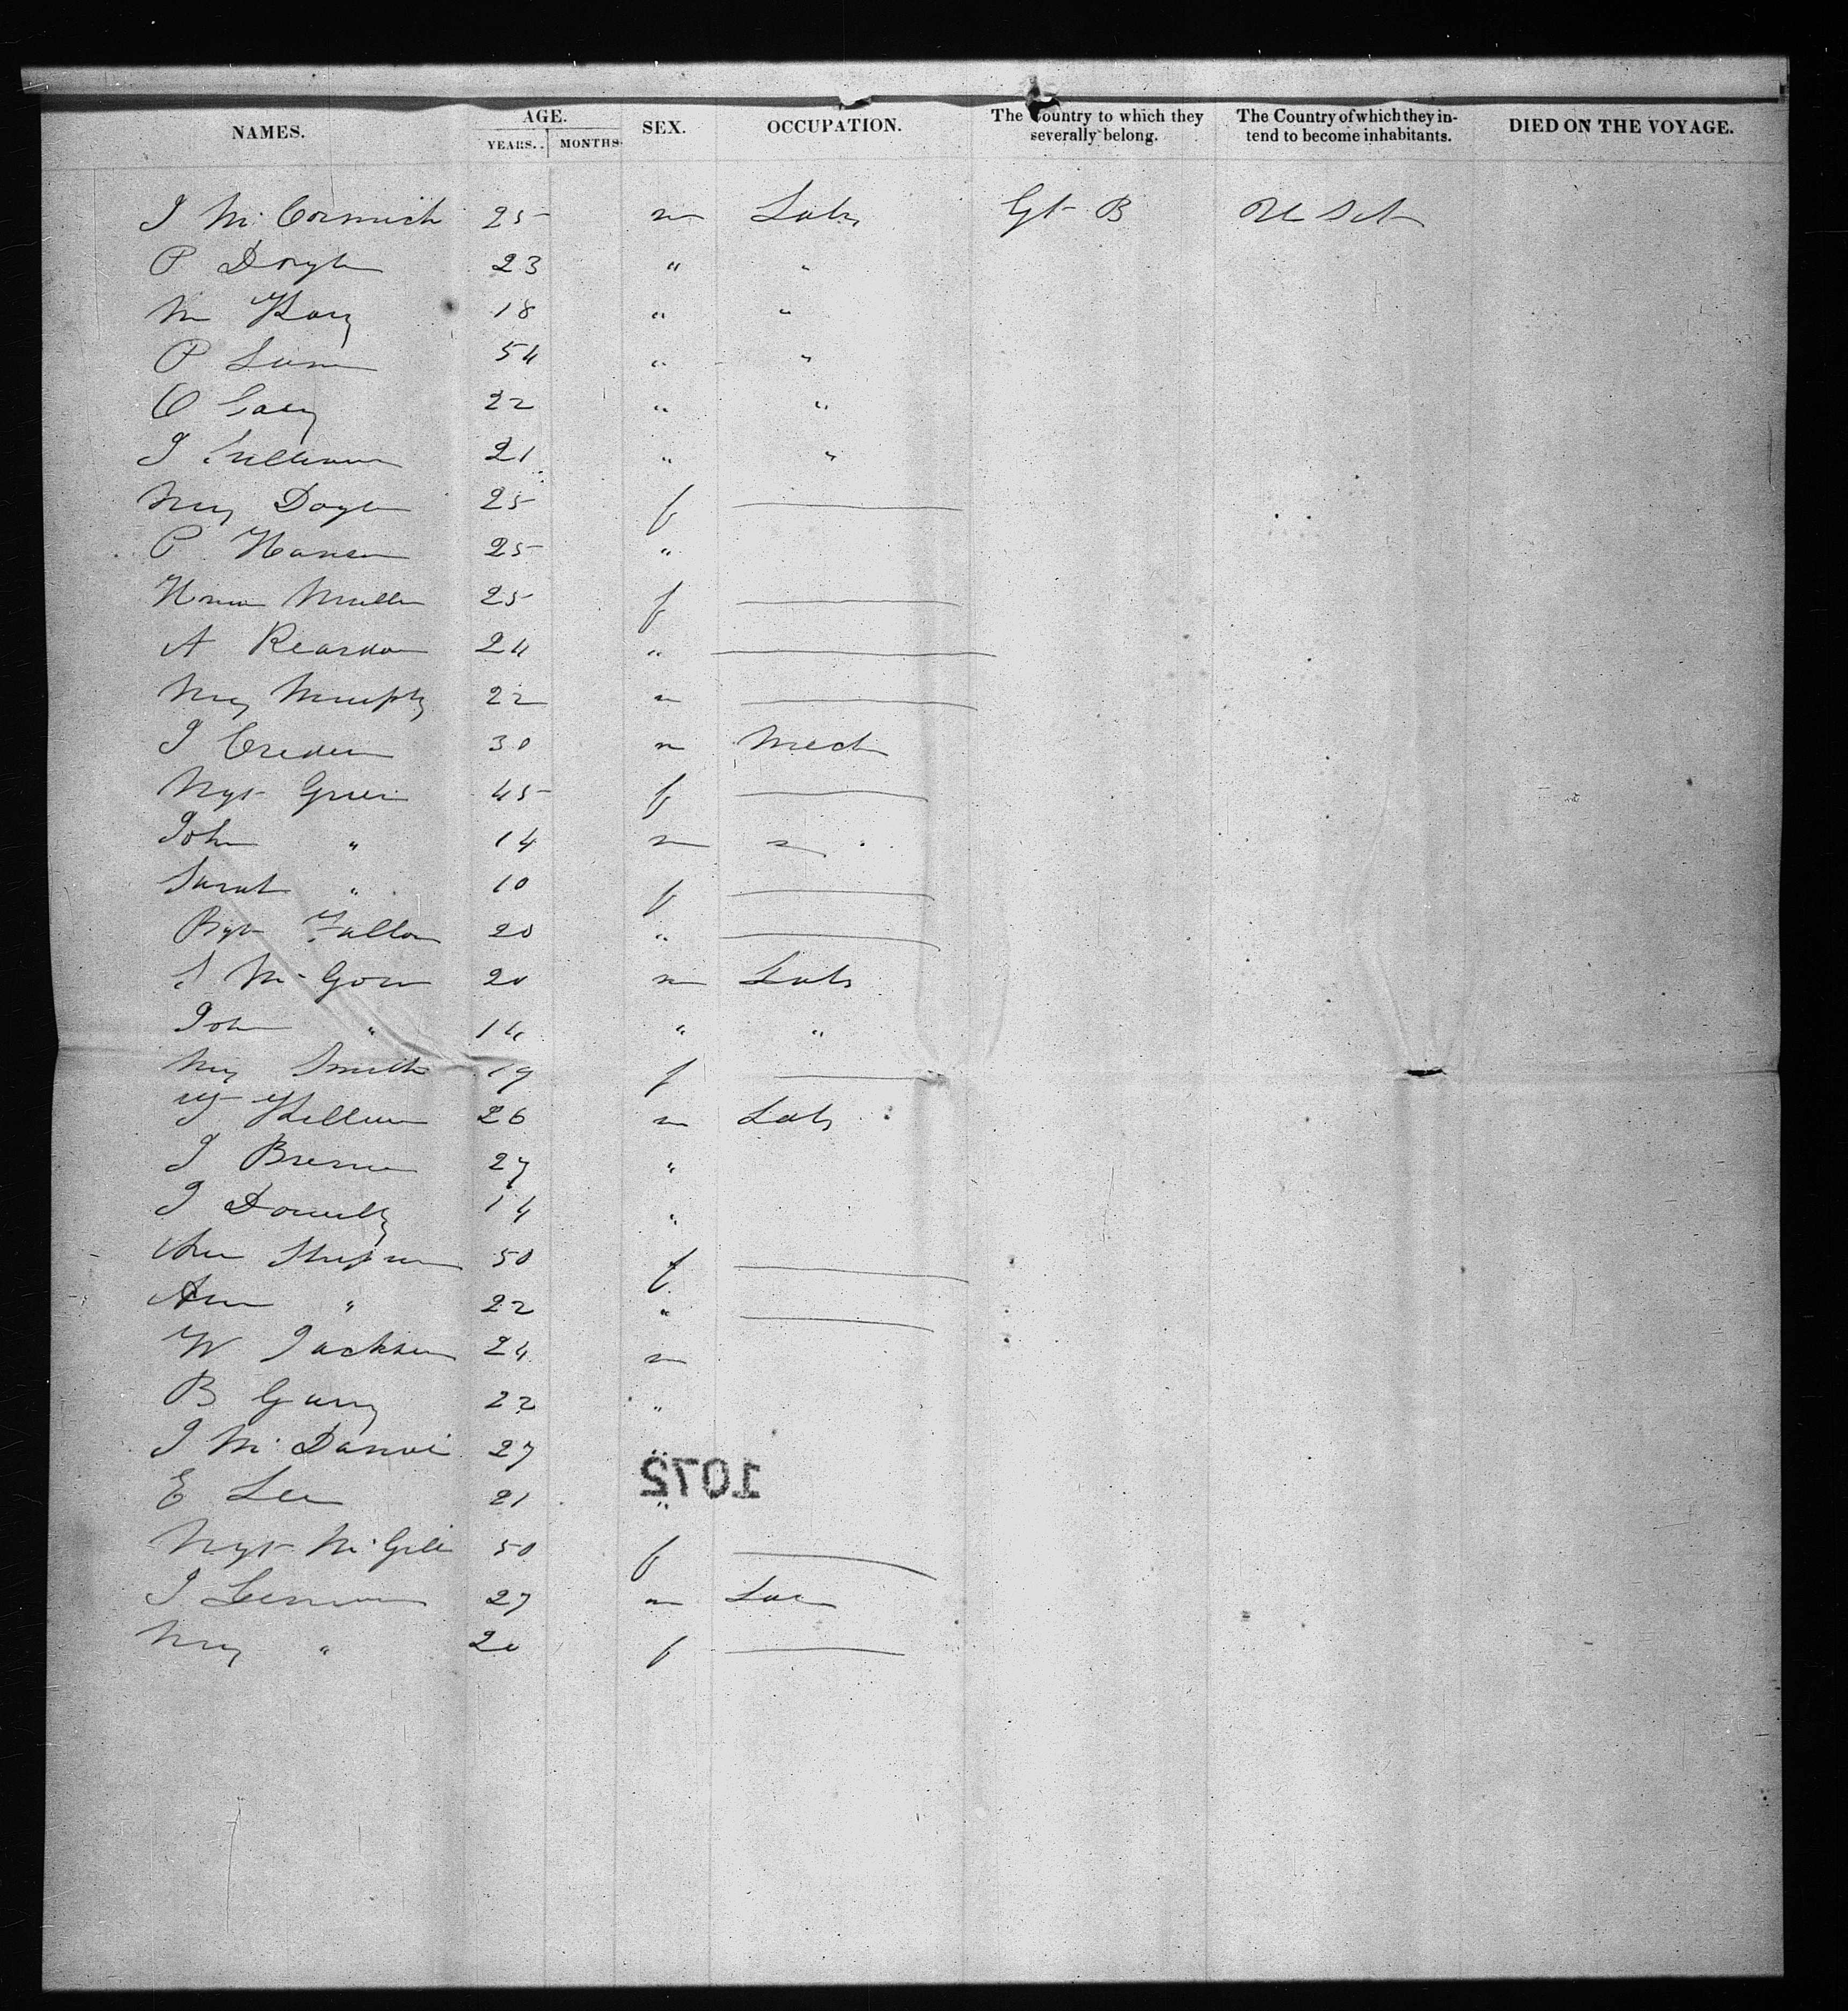 NAMES. AGE. YEARS. MONTHS SEX. OCCUPATION. The Country to which they severally belong. The Country of which they intend to become inhabitants. DIED ON THE VOYAGE.
J McCormick 25 m Labr Gt B U St
P Doyle 23 " "
M 18 " "
P 54 " "
O 22 " "
J Sullivan 21 " "
My Doyle 25 f
P Hansen 25 "
Muller 25 f
A Reardon 24 "
My Murphy 22 m
J Creden 30 m Mech
Mgt Green 45 f
John " 14 m
Sarah " 10 f
Bgt Fallon 20 "
McGovn 20 m Labr
John " 14 " "
My Smith 19 f
Killeen 26 m Labr
J Brenn 27 "
J Donnelly 14 "
50 f
Ann " 22 "
W Jackson 24 m
B Garry 22 "
J 27 "
E Lee 21 "
1072
Mgt McGill 50 f
J 27 m Lab
My " 20 f